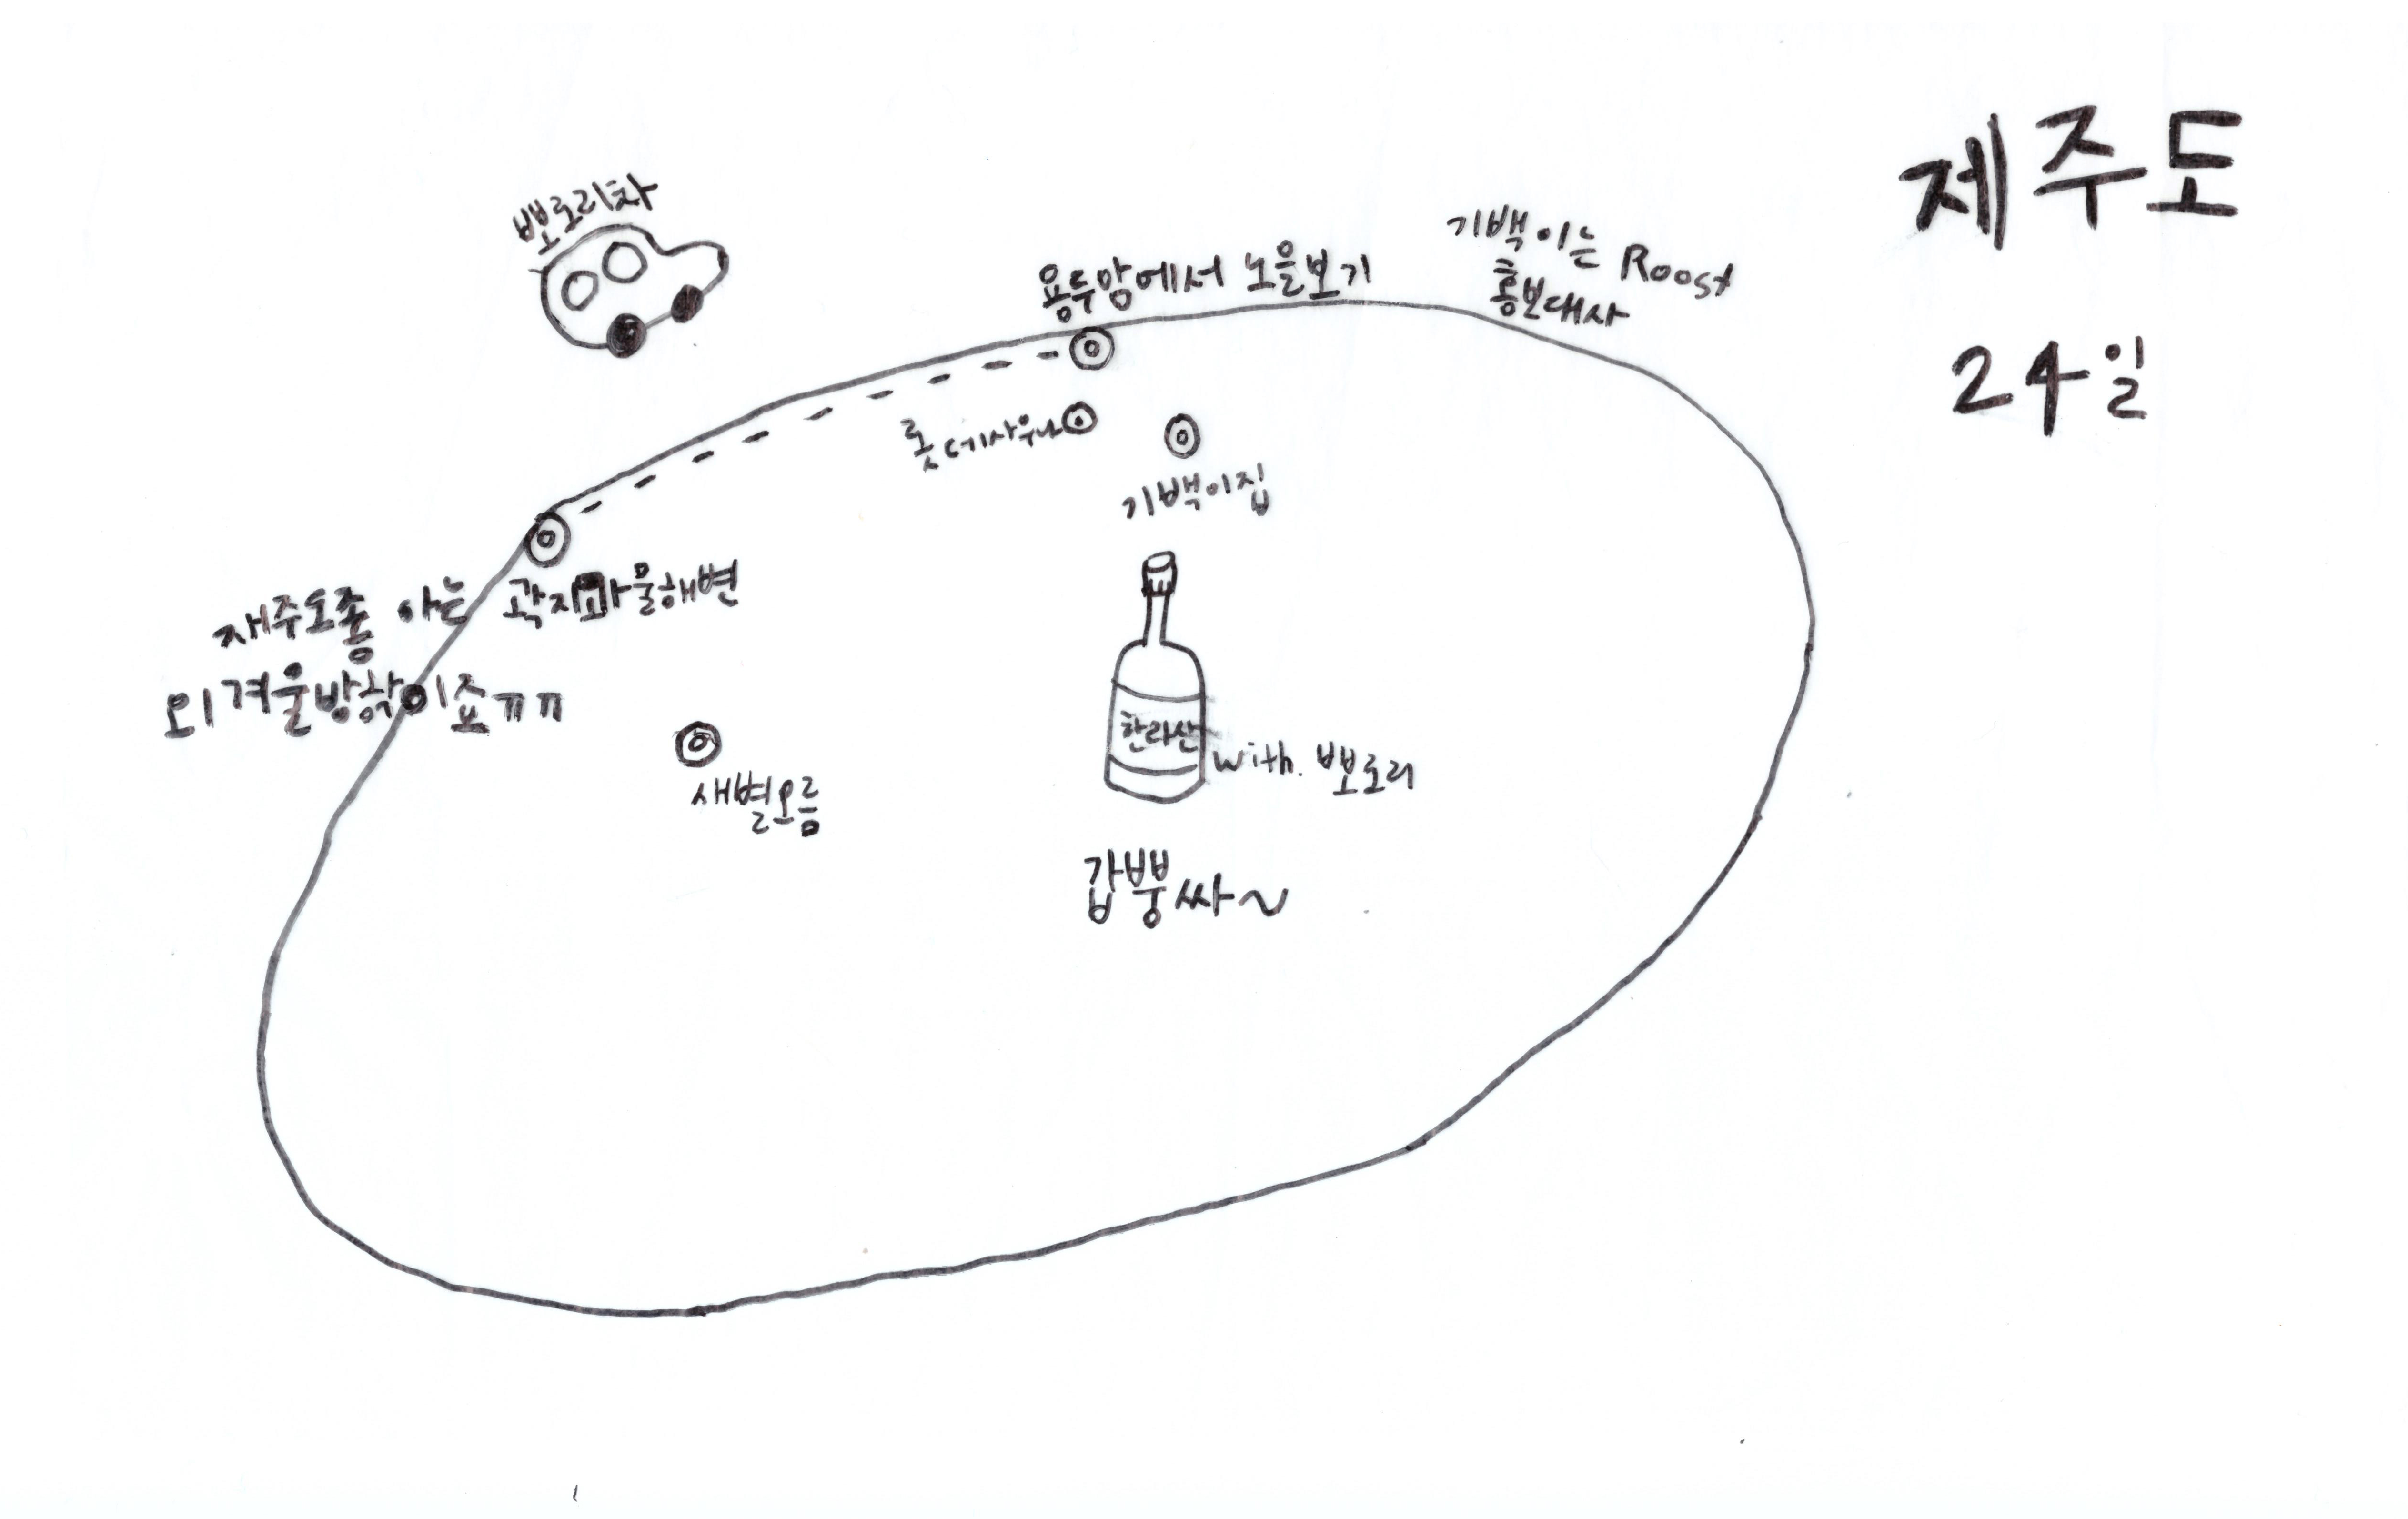 제주도
24일
뽀로리차
기백이는 Roost
홍보대사
용두암에서 노을보기
롯데사우나
기백이집
재주도좀 아는 곽지과물해변
외겨울방학이죠ㅠㅠ
한라산
with. 뽀로리
새별오름
갑뿡싸~